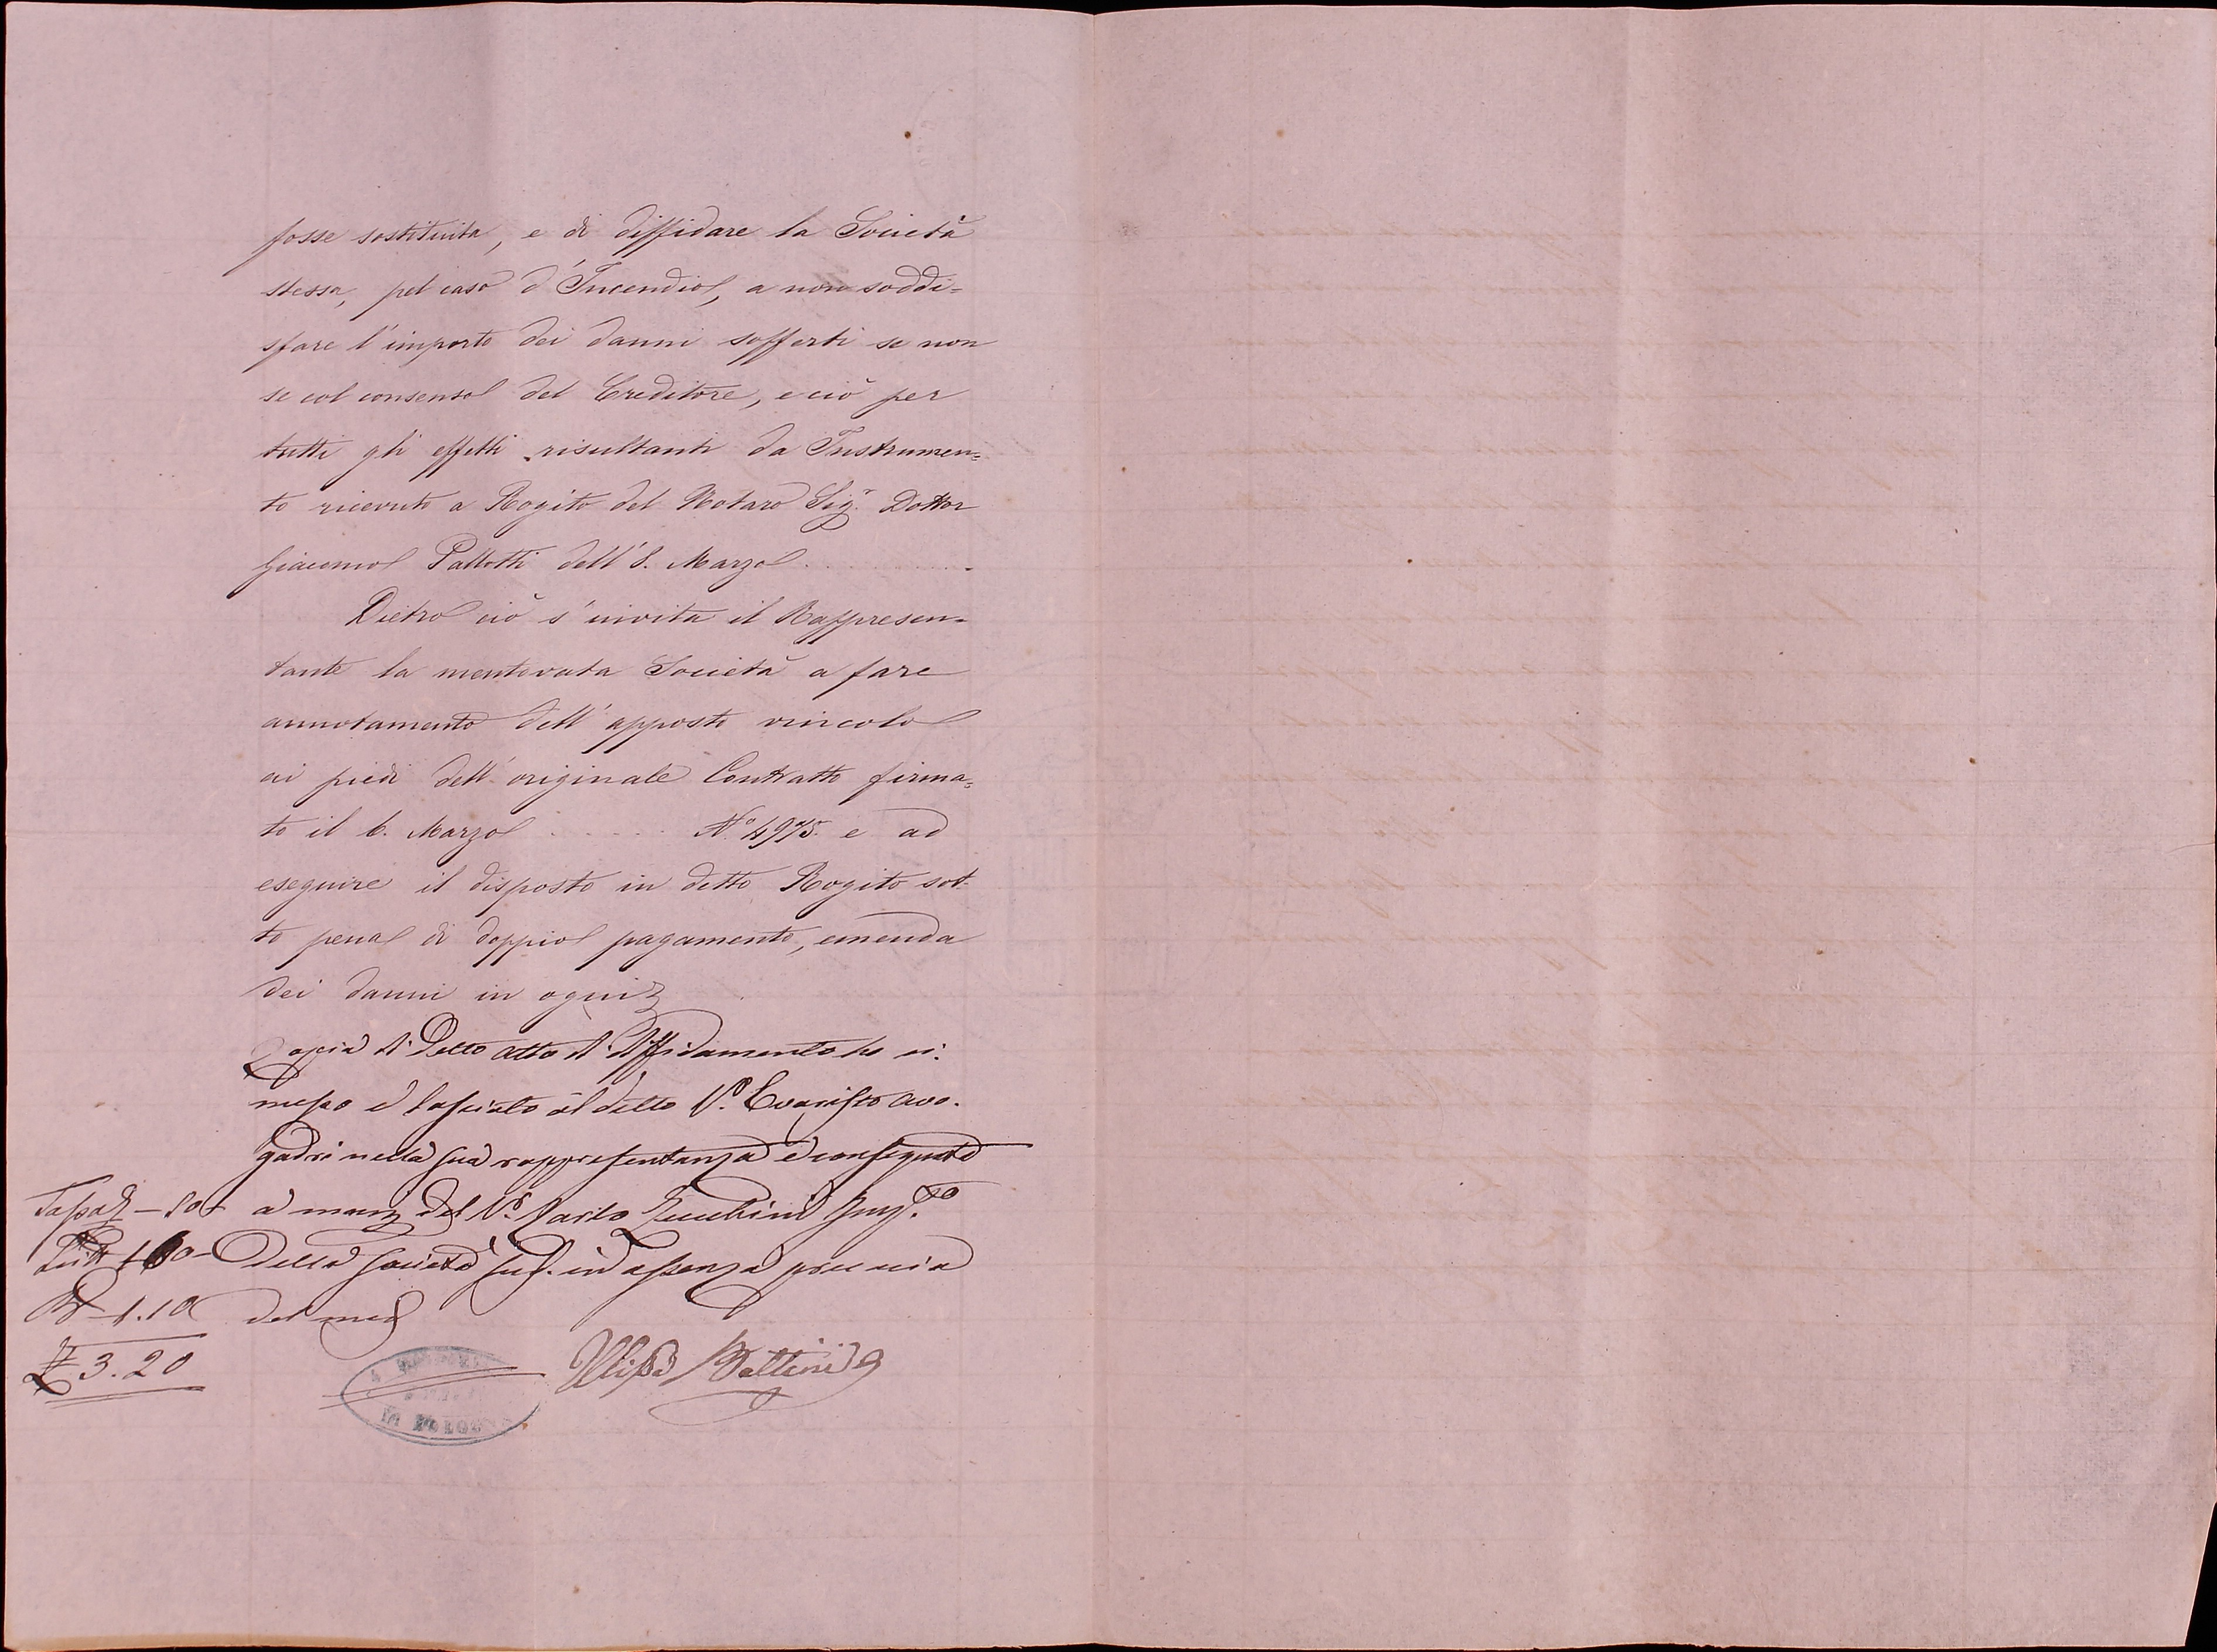 fosse sostituita, e di diffidare la Società
stessa, pel caso d'Incendio, a non soddi=
sfare l'importo dei danni sofferti se non
se col consenso del Creditore, e ciò per
tutti gli effetti risultanti da Instrumen=
to ricevuto a Rogito del Notaro Sig.r Dottor
Giacomo Pallotti dell'8. Marzo . . . . . . . . .
Dietro ciò s'invita il Rappresen=
tante la mentovata Società a fare
annotamento dell'apposto vincolo
ai piedi dell'originale Contratto firma=
to il 6. Marzo . . . . . . N.° 4975. e ad
eseguire il disposto in detto Rogito sot-
to pena di doppio pagamento, emenda
dei danni in ogni
Copia di Detto atto di diffidamento ho ri.
messo e lasciato al detto Sr. Evaristo Avo.
gadri nella sua rappresentanza e consegnata
a mani del Sr. Carlo Zucchini Imp.to
Della Società sud. in assenza precaria
del med
Tassa — 50
1.10
£ 3.20
Ulisse Battini